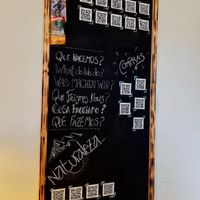 QUE HACEMOS?
What do We do?
WAS MACHEN WIR?
Que faisons Nous?
Cosa facciamo?
QUE FAZEMOS?
COMPRAS
Naturaleza